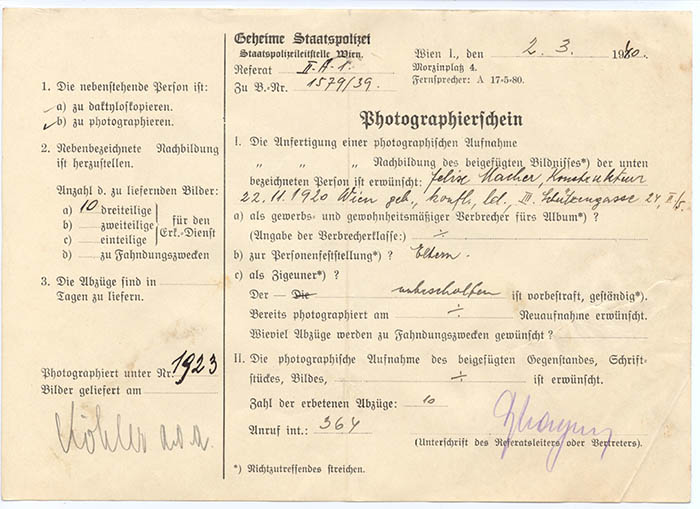 Geheime Staatspolizei
Staatspolizeileitstelle Wien.
Referat II-A-1.
Zu B.-Nr. 1579/39.
Wien I., den 2. 3. 1940.
Morzinplatz 4.
Fernsprecher: A 17-5-80.
1. Die nebenstehende Person ist:
a) zu daktyloskopieren.
b) zu photographieren.
2. Nebenbezeichnete Nachbildung
ist herzustellen.
Anzahl d. zu liefernden Bilder:
a) 10 dreiteilige
b) zweiteilige
c) einteilige
für den
Erk.-Dienst
d) zu Fahndungszwecken
3. Die Abzüge sind in
Tagen zu liefern.
Photographiert unter Nr. 1923
Bilder geliefert am
Köhler a.d.a.
Photographierschein
I. Die Anfertigung einer photographischen Aufnahme
„ „ „ Nachbildung des beigefügten Bildnisses*) der unten
bezeichneten Person ist erwünscht: Felix Macher, Konstrukteur
22.11.1920 Wien geb., konfl., ld., III. Schützengasse 24, II/5
a) als gewerbs- und gewohnheitsmäßiger Verbrecher fürs Album*) ?
(Angabe der Verbrecherklasse:) ÷
b) zur Personenfeststellung*) ? Eltern.
c) als Zigeuner*) ?
Der — Die unbescholten ist vorbestraft, geständig*).
Bereits photographiert am ÷ Neuaufnahme erwünscht.
Wieviel Abzüge werden zu Fahndungszwecken gewünscht ?
II. Die photographische Aufnahme des beigefügten Gegenstandes, Schrift-
stückes, Bildes, ÷ ist erwünscht.
Zahl der erbetenen Abzüge: 10
Anruf int.: 364
(Unterschrift des Referatsleiters oder Vertreters).
*) Nichtzutreffendes streichen.